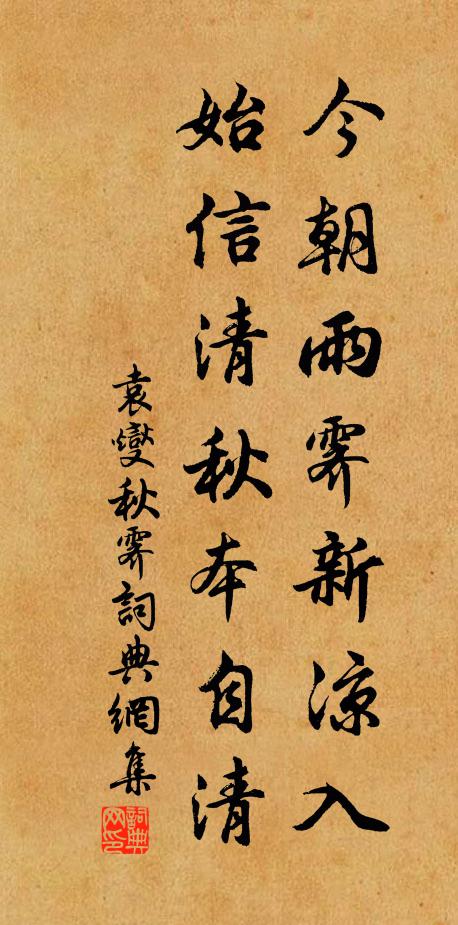 今朝雨霽新涼入
始信清秋本自清
袁燮秋霽詞典網集
詞典網印